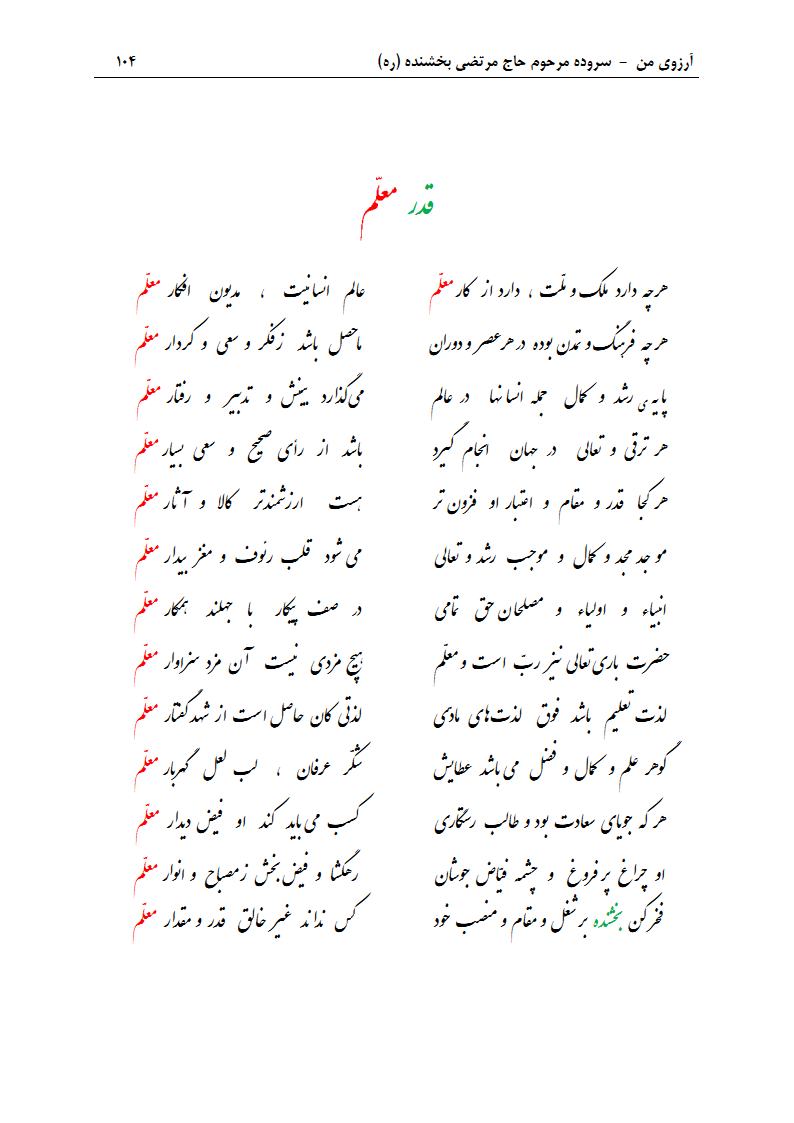 آرزوی من - سروده مرحوم حاج مرتضی بخشنده (ره) ۱۰۴
قدر معلّم
هرچه دارد ملک و ملّت ، دارد از کار معلّم عالم انسانیت ، مدیون افکار معلّم
هرچه فرهنگ و تمدن بوده در هر عصر و دوران ماحصل باشد زفکر و سعی و کردار معلّم
پایه ی رشد و کمال جمله انسانها در عالم می‌گذارد بینش و تدبیر و رفتار معلّم
هر ترقی و تعالی در جهان انجام گیرد باشد از رأی صحیح و سعی بسیار معلّم
هر کجا قدر و مقام و اعتبار او فزون تر هست ارزشمندتر کالا و آثار معلّم
موجد مجد و کمال و موجب رشد و تعالی می شود قلب رئوف و مغز بیدار معلّم
انبیاء و اولیاء و مصلحان حق تمامی در صف پیکار با جهلند همکار معلّم
حضرت باری‌تعالی نیز ربّ است و معلّم هیچ مزدی نیست آن مزد سزاوار معلّم
لذت تعلیم باشد فوق لذت‌های مادی لذتی کان حاصل است از شهد گفتار معلّم
گوهر علم و کمال و فضل می باشد عطایش شکّر عرفان ، لب لعل گهربار معلّم
هر که جویای سعادت بود و طالب رستگاری کسب می باید کند او فیض دیدار معلّم
او چراغ پر فروغ و چشمه فیّاض جوشان رهگشا و فیض بخش زمصباح و انوار معلّم
فخر کن بخشنده بر شغل و مقام و منصب خود کس نداند غیر خالق قدر و مقدار معلّم